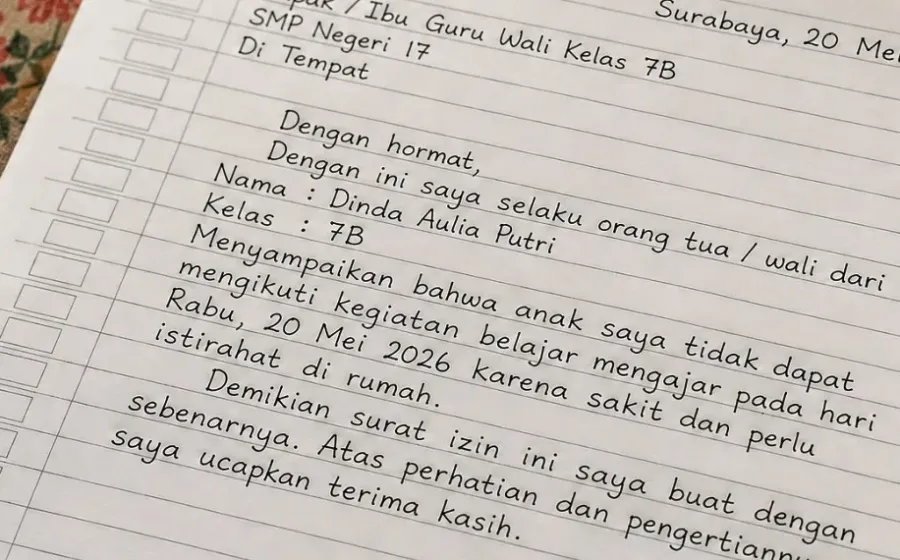 Surabaya, 20 Mei
/ Ibu Guru Wali Kelas 7B
SMP Negeri 17
Di Tempat
Dengan hormat,
Dengan ini saya selaku orang tua / wali dari
Nama : Dinda Aulia Putri
Kelas : 7B
Menyampaikan bahwa anak saya tidak dapat
mengikuti kegiatan belajar mengajar pada hari
Rabu, 20 Mei 2026 karena sakit dan perlu
istirahat di rumah.
Demikian surat izin ini saya buat dengan
sebenarnya. Atas perhatian dan
saya ucapkan terima kasih.